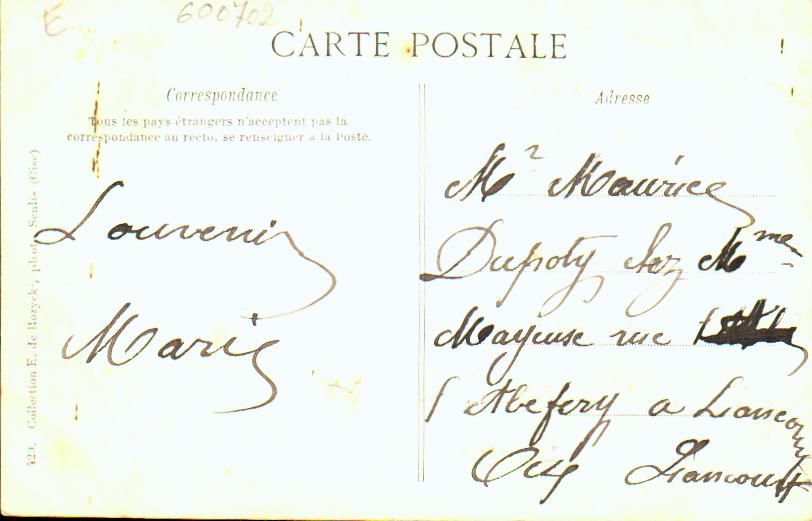 E
600702
CARTE POSTALE
Correspondance
Tous les pays étrangers n'acceptent pas la
correspondance au recto, se renseigner à la Poste.
Souvenir
Marie
429. Collection E. de Rozycki, phot. Senlis (Oise)
Adresse
Mr Maurice
Dupoty chez Mme
Mayeuse rue
à Liancourt
Oise Liancourt